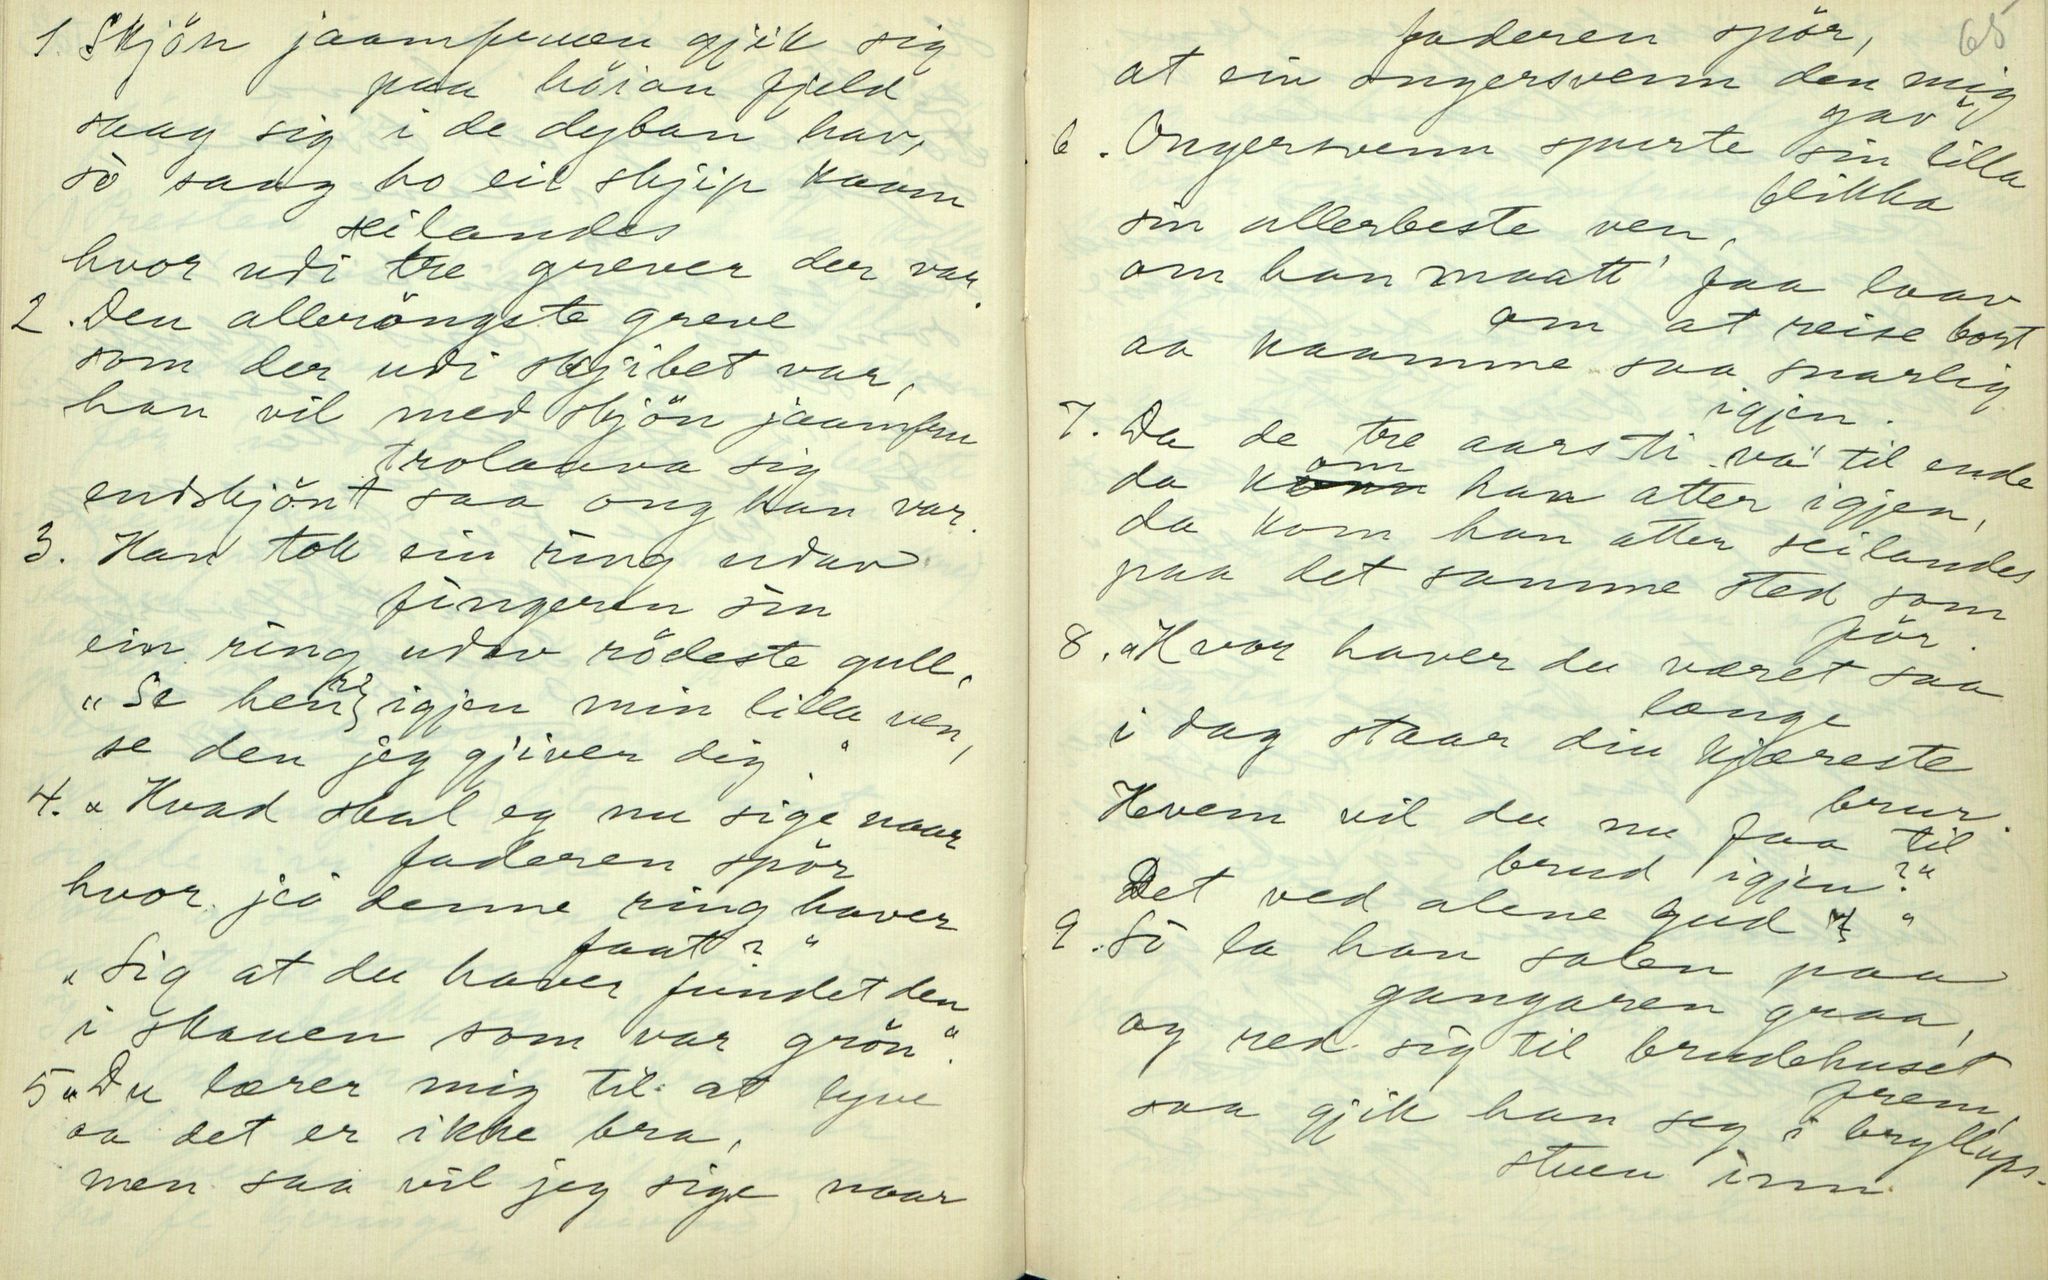 1. Skjön jaamfruen gjik sig
paa höian fjeld
saag sig i de dyban hav,
sò saag ho eit skjip kaam
seilandes
hvor udi tre grever der var.
2. Den alleröngste greve
som der udi skjibet var,
han vil med skjön jaamfru
trolaava sig
endskjönt saa ong han var.
3. Han tok ein ring udav
fingeren sin
ein ring udav rödeste gull,
"Se her igjen min lilla ven,
se den jeg gjiver dig."
4. "Hvad skal eg nu sige naar
faderen spör
hvor jei denne ring haver
faat?"
"Sig at du haver fundet den
i skauen som var grön".
5. "Du lærer mig til at lyve
aa det er ikke bra,
men saa vil jeg sige naar
65
faderen spör,
at ein ongersvenn den mig
gav",
6. Ongersvenn spurte sin lilla
blikka
sin allerbeste ven,
om han maatt' faa laav
om at reise bort
aa kaamme saa snarlig
igjen.
7. Da de tre aars ti va' til ende
da kom han atter igjen,
da kom han atter seilandes
paa det samme sted som
för.
8. "Hvor haver du været saa
længe
i dag staar din kjæreste
brur.
Hvem vil du nu faa til
brud igjen?"
Det ved alene gud "
9. Sò la han salen paa
gangaren graa,
og red sig til brudehuset
frem,
saa gjik han seg i bryllups-
stuen inn